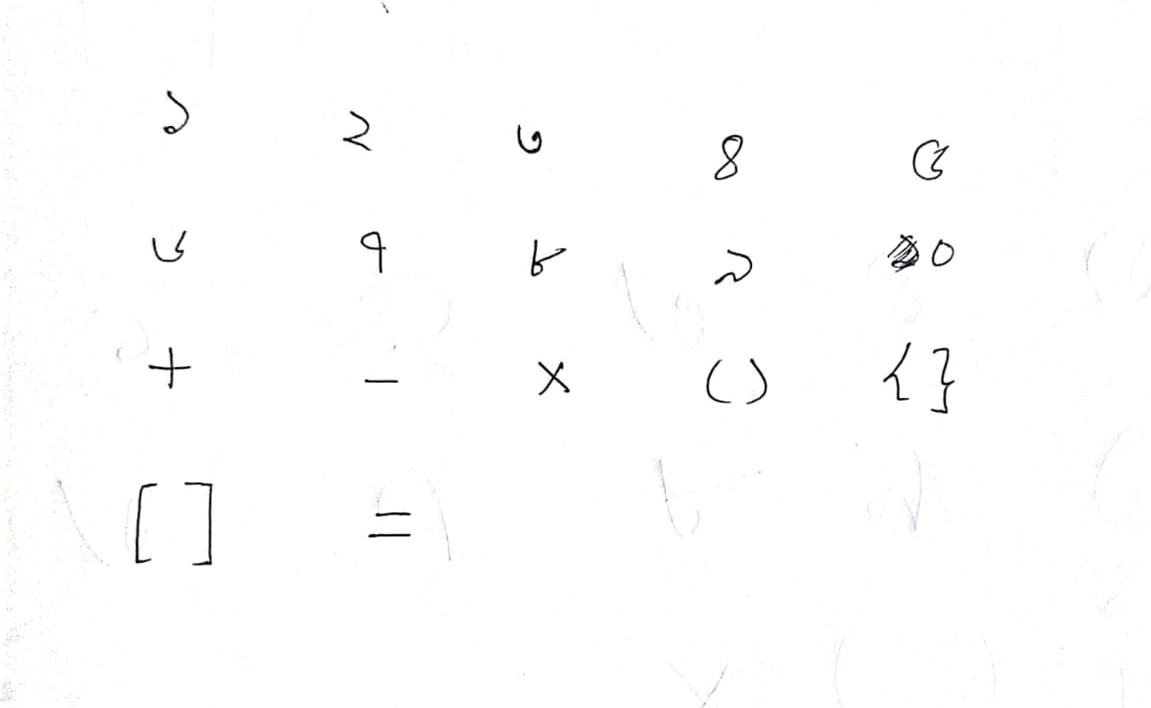 ১ ২ ৩ ৪ ৫
৬ ৭ ৮ ৯ ০
+ - × () {}
[ ] =